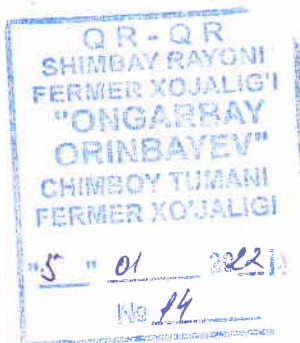 QR-QR
SHIMBAY RAYONI
FERMER XOJALIG'I
"ONGARBAY
ORINBAYEV"
CHIMBOY TUMANI
FERMER XO'JALIGI
"5" 01 2022
№ 14